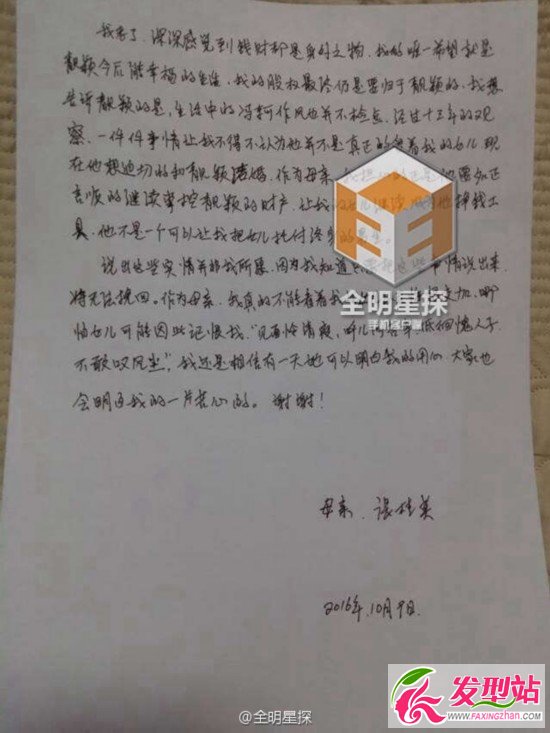 我老了,深深感觉到钱财都是身外之物,我的唯一希望就是
靓颖今后能幸福的生活,我的股权最终仍是要归于靓颖的,我想
告诉靓颖的是,生活中的冯轲作风也并不检点,经过十三年的观
察,一件件事情让我不得不认为他并不是真正的爱着我的女儿,现
在他想迫切的和靓颖结婚,作为母亲,我
言顺的继续掌控靓颖的财产,让我的女儿继续成为他挣钱工
具,他不是一个可以让我把女儿托付终身的男人。
说出这些实情并非我所愿,因为我知道 事情说出来,
将无法挽回。作为母亲,我真的不能看着我 ,哪
怕女儿可能因此记恨我。“见面怜清瘦,呼儿问苦辛,低徊愧人子,
不敢叹风尘”,我还是相信有一天她可以明白我的用心,大家也
会明白我的一片苦心的。谢谢!
母亲:张桂英
2016年,10月9日.
全明星探
手机客户端
@全明星探
发型站
WWW.FAXINGZHAN.COM